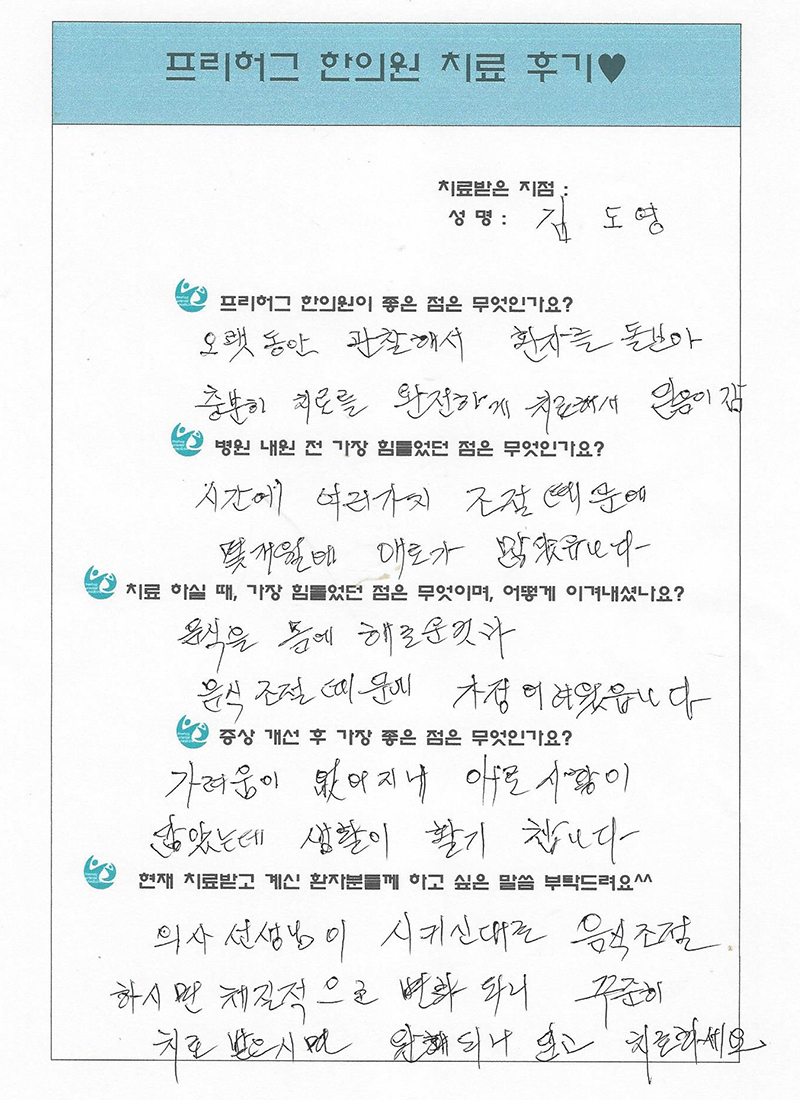 프리허그 한의원 치료 후기♥
치료받은 지점 :
성 명 : 김 도영
프리허그 한의원이 좋은 점은 무엇인가요?
오랫동안 관찰해서 환자를 돌보아
충분히 치료를 완전하게 치료해서 믿음이 감
병원 내원 전 가장 힘들었던 점은 무엇인가요?
시간에 여러가지 조절 때문에
몇개월에 애로가 많았읍니다
치료 하실 때, 가장 힘들었던 점은 무엇이며, 어떻게 이겨내셨나요?
음식을 몸에 해로운것과
음식 조절 때문에 가장 어려웠읍니다
증상 개선 후 가장 좋은 점은 무엇인가요?
가려움이 없어지내
많았는데 생활이 활기 찹니다
현재 치료받고 계신 환자분들께 하고 싶은 말씀 부탁드려요^^
의사 선생님이 시키신대로 음식조절
하시면 체질적으로 변화 되니 꾸준히
치료 받으시면 치료하세요